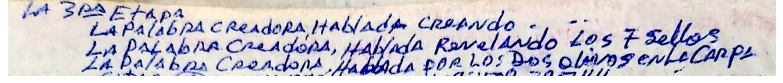 LA 3RA ETAPA
LA PALABRA CREADORA, HABLADA CREANDO...
LA PALABRA CREADORA, HABLADA REVELANDO LOS 7 Sellos
LA PALABRA CREADORA, HABLADA POR LOS DOS OLIVOS EN LA CARPA